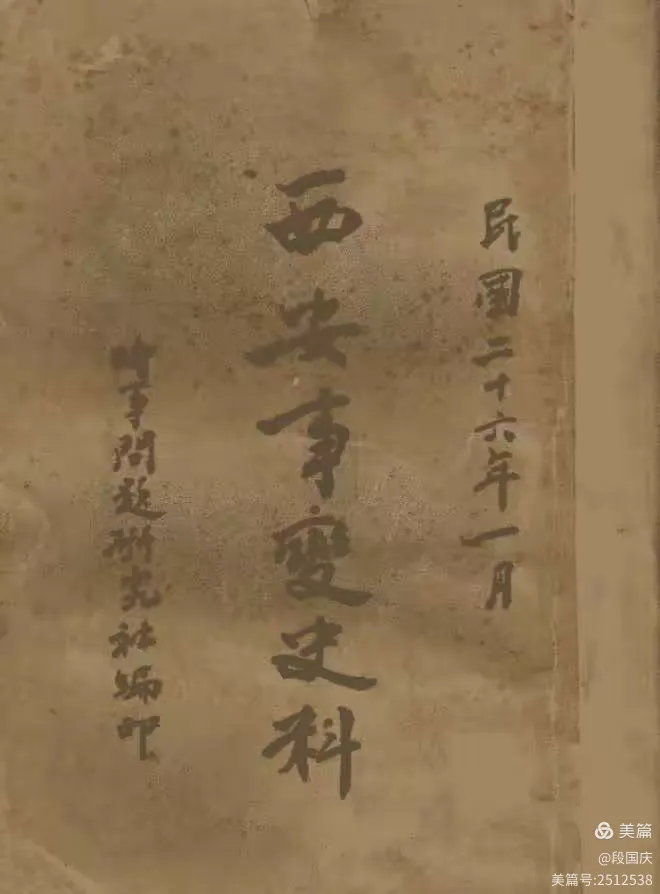 民國二十六年一月
西安事變史料
時事問題研究社編印
美篇
@段国庆
美篇号:2512538